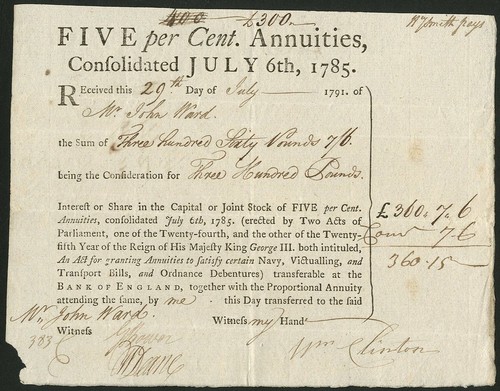 400 £300
Wm Smith pays
FIVE per Cent. Annuities,
Conſolidated JULY 6th, 1785.
Received this 29th Day of July 1791. of
Mr John Ward.
the Sum of Three hundred Sixty Pounds 7/6.
being the Conſideration for Three Hundred Pounds.
Intereſt or Share in the Capital or Joint Stock of FIVE per Cent.
Annuities, conſolidated July 6th, 1785. (erected by Two Acts of
Parliament, one of the Twenty-fourth, and the other of the Twenty-
fifth Year of the Reign of His Majeſty King George III. both intituled,
An Act for granting Annuities to ſatisfy certain Navy, Victualling, and
Tranſport Bills, and Ordnance Debentures) transferable at the
BANK OF ENGLAND, together with the Proportional Annuity
attending the ſame, by me this Day transferred to the ſaid
£ 360. 7. 6
7-6
360.15
Mr John Ward.
Witneſs my Hand
Witneſs
383
Wm Clinton